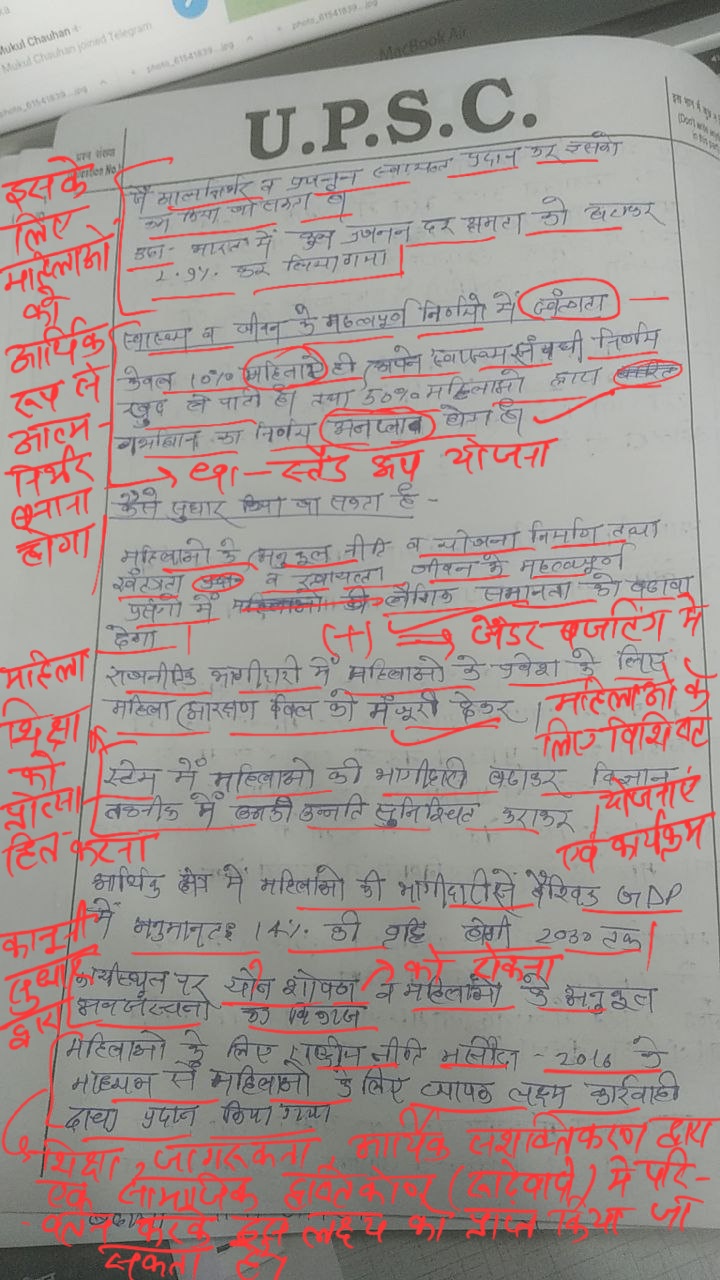 Mukul Chauhan
Mukul Chauhan joined Telegram
photo_61541839...jpg
photo_61541839...jpg
photo_61541839...jpg
MacBook Air
U.P.S.C.
प्रश्न संख्या
(Question No.)
(Don't write
in this part)
इसके
लिए
महिलाओं
को
आर्थिक
रूप से
आत्म-
निर्भर
बनाना
होगा
में आत्मनिर्भर व प्रजनन स्वायत्तता प्रदान कर इसको
कम किया जा सकता है
उदा- भारत में कुल प्रजनन दर क्षमता को घटाकर
कर लिया गया
स्वास्थ्य व जीवन के महत्वपूर्ण निर्णयो में स्वतंत्रता
केवल 10% महिलाये ही अपने स्वास्थ्य संबंधी निर्णय
खुद ले पाती है। तथा 50% महिलाओ द्वारा
गर्भाधान का निर्णय अनप्लांड होता है।
→ eg. - स्टैंड अप योजना
कैसे सुधार किया जा सकता है -
महिलाओ के अनुकूल नीति व योजना निर्माण तथा
स्वतंत्रता व स्वायत्तता जीवन के महत्वपूर्ण
प्रसंगो में लैंगिक समानता को बढावा
देगा।
(+) ⇒ जेंडर बजटिंग में
महिलाओं के
लिए विशिष्ट
योजनाएं
एवं कार्यक्रम
राजनीतिक भागीदारी में महिलाओ के प्रवेश के लिए
महिला आरक्षण बिल को मंजूरी देकर।
महिला
शिक्षा
को
प्रोत्सा
हित करना
स्टेम में महिलाओ की भागीदारी बढाकर विज्ञान
तकनीक में उनकी उन्नति सुनिश्चित कराकर
आर्थिक क्षेत्र में महिलाओ की भागीदारी से वैश्विक GDP
में अनुमानतः 14% की वृद्धि होगी 2030 तक।
कानूनी
सुधार
द्वारा
कार्यस्थल पर यौन शोषण को रोकना व महिलाओ के अनुकूल
अवसंरचना का विकास
महिलाओ के लिए राष्ट्रीय नीति मसौदा - 2016 के
माध्यम से महिलाओ के लिए व्यापक लक्ष्य कार्रवाही
ढाचा प्रदान किया गया
शिक्षा, जागरूकता, आर्थिक सशक्तिकरण द्वारा
एवं सामाजिक दृष्टिकोण में परि-
वर्तन करके इस लक्ष्य को प्राप्त किया जा
सकता है।